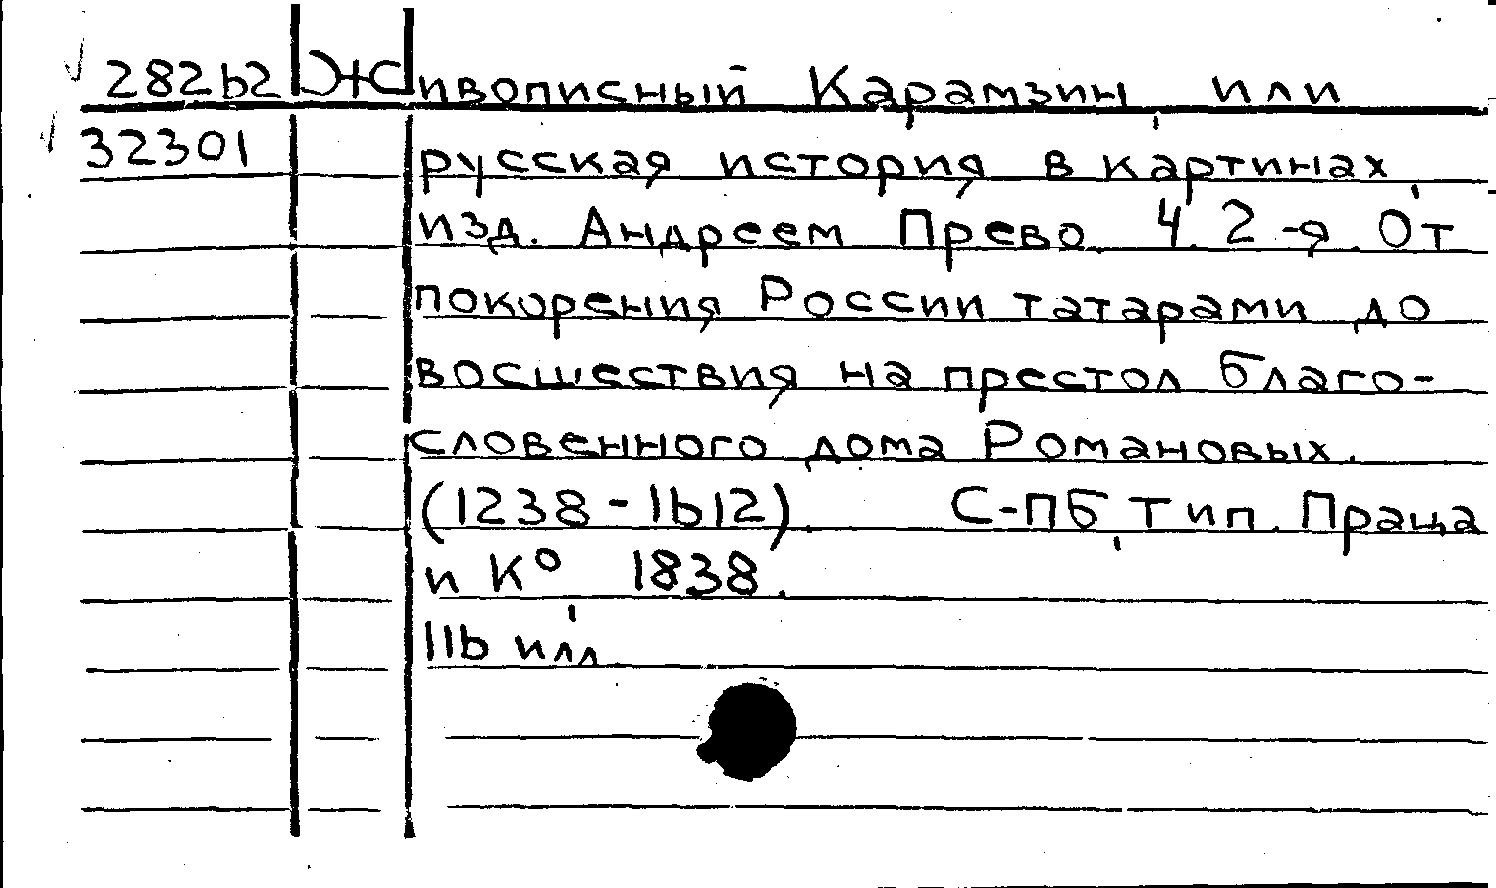 28262 Живописный Карамзин, или
32301 русская история в картинах,
изд. Андреем Прево. Ч. 2-я. От
покорения России татарами до
восшествия на престол благо-
словенного дома Романовых.
(1238-1612). С-ПБ, Тип. Праца
и К° 1838.
116 илл.